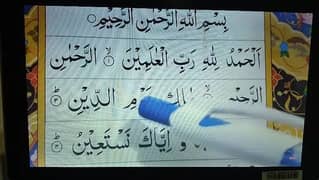 بِسْمِ اللهِ الرَّحْمٰنِ الرَّحِيْمِ
اَلْحَمْدُ لِلّٰهِ رَبِّ الْعٰلَمِيْنَ ۙ۝۱ الرَّحْمٰنِ
الدِّيْنِ ۝۳
وَ اِيَّاكَ نَسْتَعِيْنُ ۝۴